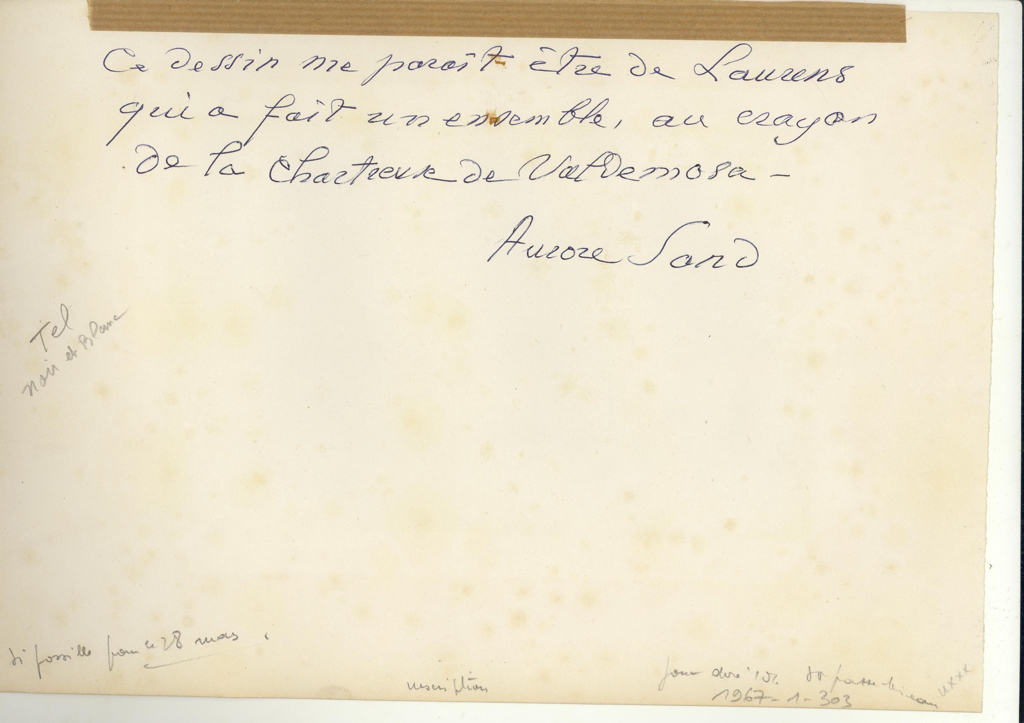 Ce dessin me paraît être de Laurens
qui a fait un ensemble, au crayon
de la Chartreuse de Valdemosa –
Aurore Sand
Tel
Noir et Blanc
si possible pour le 28 mars
inscription
1967-1-303